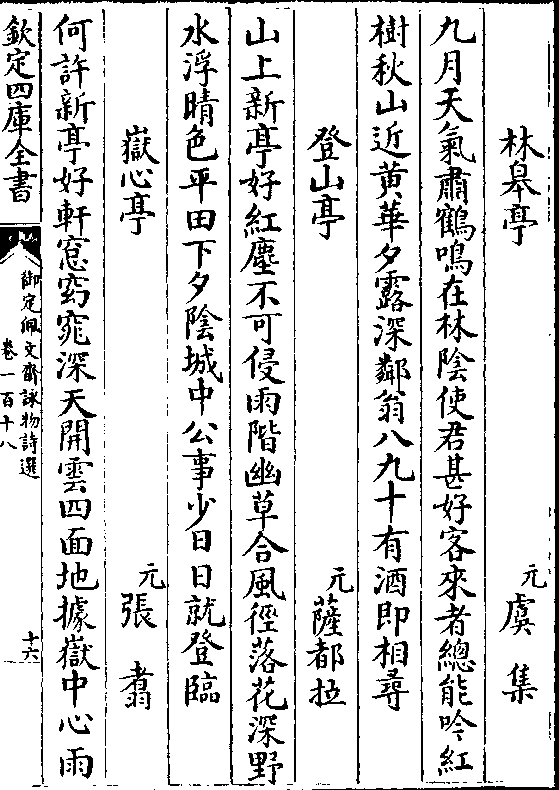 林皋亭　元　虞集
九月天氣肅鶴鳴在林陰使君甚好客來者總能吟紅
樹秋山近黄華夕露深鄰翁八九十有酒即相尋
登山亭　元　薩都拉
山上新亭好紅塵不可侵雨階幽草合風徑落花深野
水浮晴色平田下夕陰城中公事少日日就登臨
嶽心亭　元　張翥
何許新亭好軒窓窈窕深天開雲四面地據嶽中心雨
欽定四庫全書
御定佩文齋詠物詩選
卷一百十八
十六